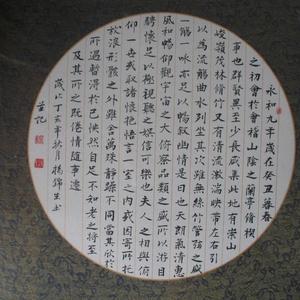 永和九年歲在癸丑暮春
之初會於會稽山陰之蘭亭脩禊
事也群賢畢至少長咸集此地有崇山
峻嶺茂林脩竹又有清流激湍映帶左右引
以為流觴曲水列坐其次雖無絲竹管弦之盛
一觴一詠亦足以暢敘幽情是日也天朗氣清惠
風和暢仰觀宇宙之大俯察品類之盛所以遊目
騁懷足以極視聽之娛信可樂也夫人之相與俯
仰一世或取諸懷抱悟言一室之內或因寄所托
放浪形骸之外雖舍萬殊靜躁不同當其欣於
所遇暫得於己快然自足不知老之將至
及其所之既倦情隨事遷
歲次丁亥年秋月楊錦生書
並記